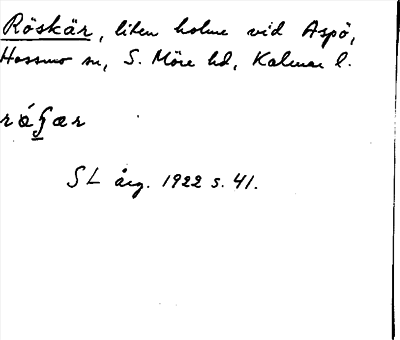 Röskär, liten holme vid Aspö,
Hossmo sn, S. Möre hd, Kalmar l.
SL årg. 1922 s. 41.